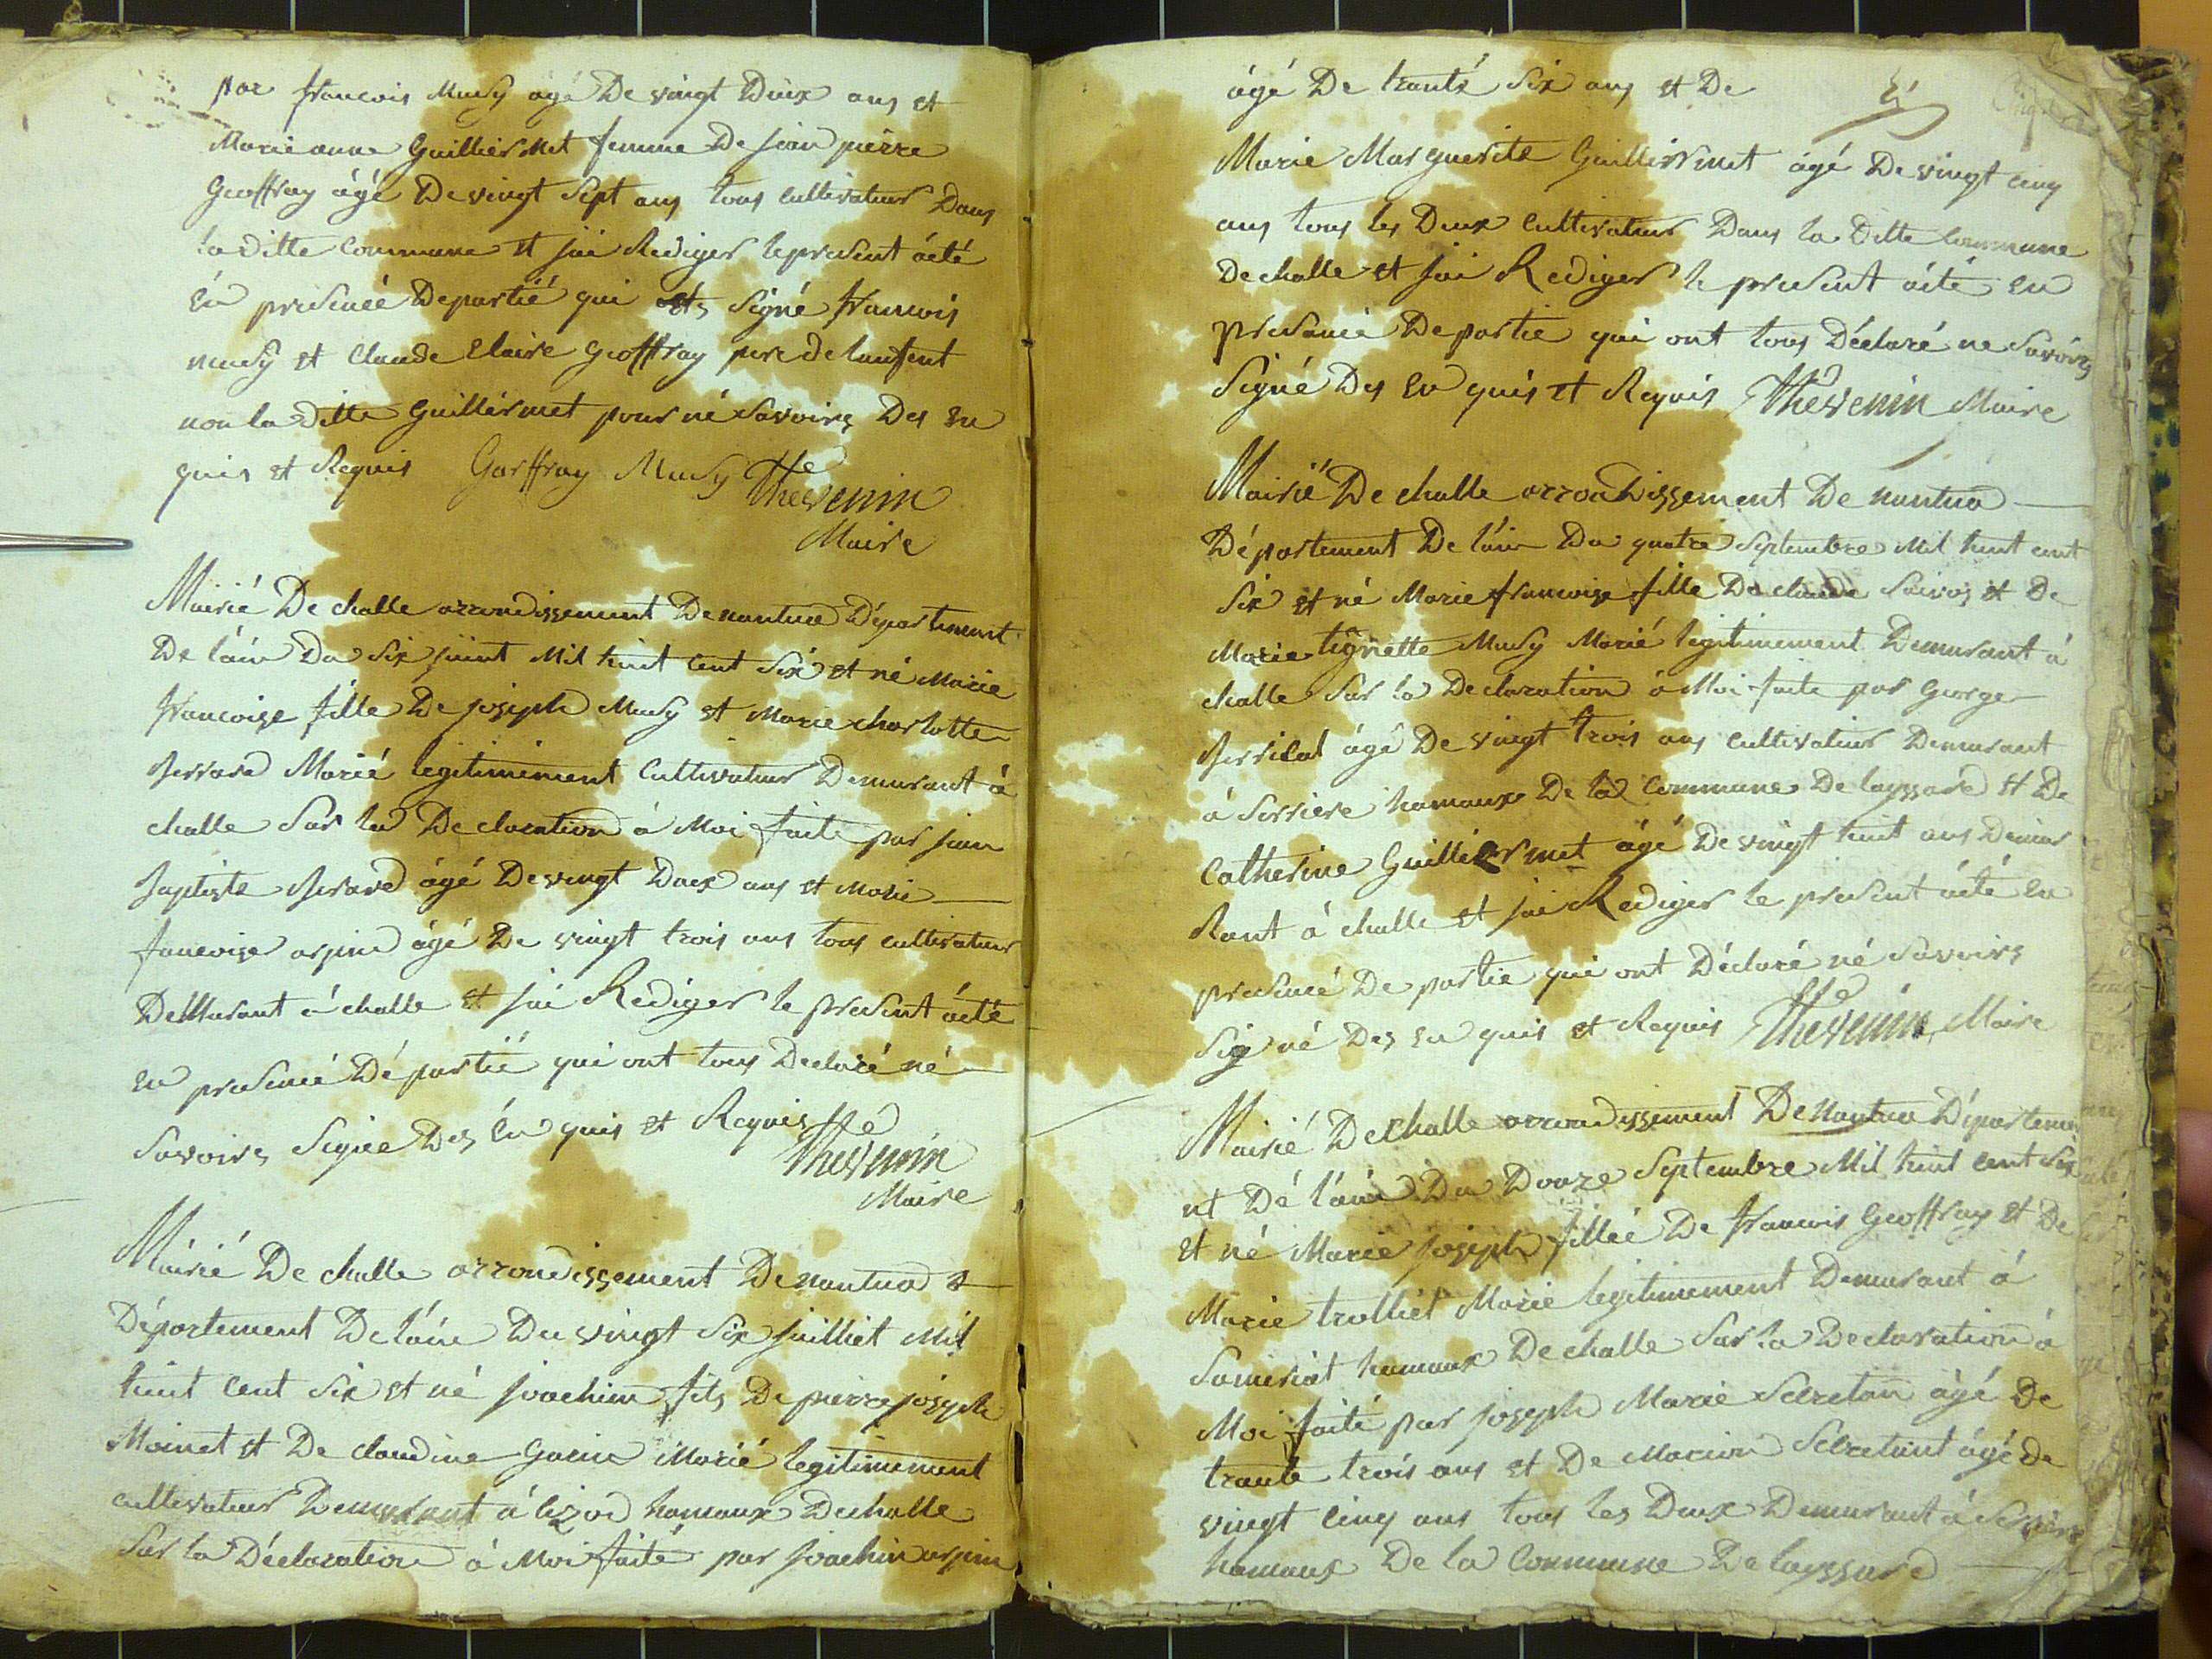 par francois Musy agé De vingt Deux ans et
Marie anne Guilliermet femme De jean pierre
Geoffray ágé De vingt Sept ans tous cultivateur Dans
la ditte Commune et jai Rediger le present ácté
én presencé De partié qui ets signé francois
musy et Claude Claire Geoffray pere de lenfent
non la ditte Guillermet pour né Savoires Des en
quis et Requis Geoffray Musy Thevenin
Maire
Mairié De challe arrondissement De nantua Département
De láin Du six juint Mil huit cent Six et né Marie
francoise fille De joseph Musy et Marie charlotte
Berrard Marié legitimiment Cultivateur Demurant á
challe Sur la De claration á Moi faite par jean
Baptiste Berard ágé De vingt Deux ans et Marie
francoise arpin ágé De vingt trois ans tous cultivateur
DeMurant á challe et jai Rediger le present ácté
en presencé Dé partié qui ont tous Declaré né
Savoires Signée Des én quis et Requis
Thevenin
Maire
Mairié De challe arrondissement De nantua
Département De láin Du vingt Six juilliet Mil
huit cent Six et né joachim fils De pierre joseph
Moinet et De claudine Gacin Marié legitimement
cultivateur Demurant á lizod hamaux De challe
Sur la Déclaration á Moi faité par joachin arpin
ágé De trante Six ans et De
Marie Marguerite Guilliermet ágé De vingt cinq
ans tous les Deux Cultivateur Dans la Ditte Commune
De challe et jai Rediger le present ácté en
presancé De partie qui ont tous Déclaré ne Savoirs
Signé Des en quis et Requis Thevenin Maire
Mairié De challe arrondissement De nantua
Département De láin Du quatre Septembre Mil huit cent
Six et né Marie francoise fille De claude Saivos et De
Marie tignette Musy Marié legitimement Demurant á
challe Sur la Declaration á Moi faite par George
BerriLat ágé De vingt trois ans cultivateur Demurant
á Serriere hamaux De la Commune De layssard et De
Catherine Guilliermet ágé De vingt huit ans Demu
Rant á challe et jai Rediger le present ácté en
presencé De partie qui ont Déclaré né Savoirs
Signé Des en quis et Requis Thevenin Maire
Mairié De challe arrondissement De Nantua Départeme
nt Dé láin Du Douze Septembre Mil huit cent Six
et né Marie joseph filleé De francois Geoffray et De
Marie trolliet Marié legitimement Demurant á
Somériat hamaux De challe Sur la Declaration á
Moi faité par joseph Marie Secretan ágé De
trante trois ans et De Marion Secretant ágé de
vingt Cinq ans tous les Deux Demurant á Serriere
hamaux De la Commune De layssard